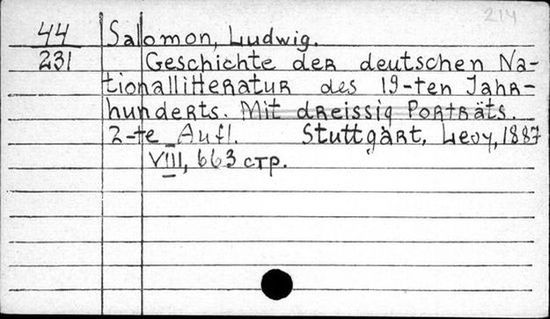 214
44 Salomon, Ludwig.
231 Geschichte der deutschen Na-
tionallitteratur des 19-ten Jahr-
hunderts. Mit dreissig Porträts.
2-te Aufl. Stuttgart, Levy, 1887
VIII, 663 стр.